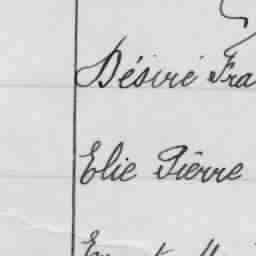 Désiré Fra
Elie Pierre